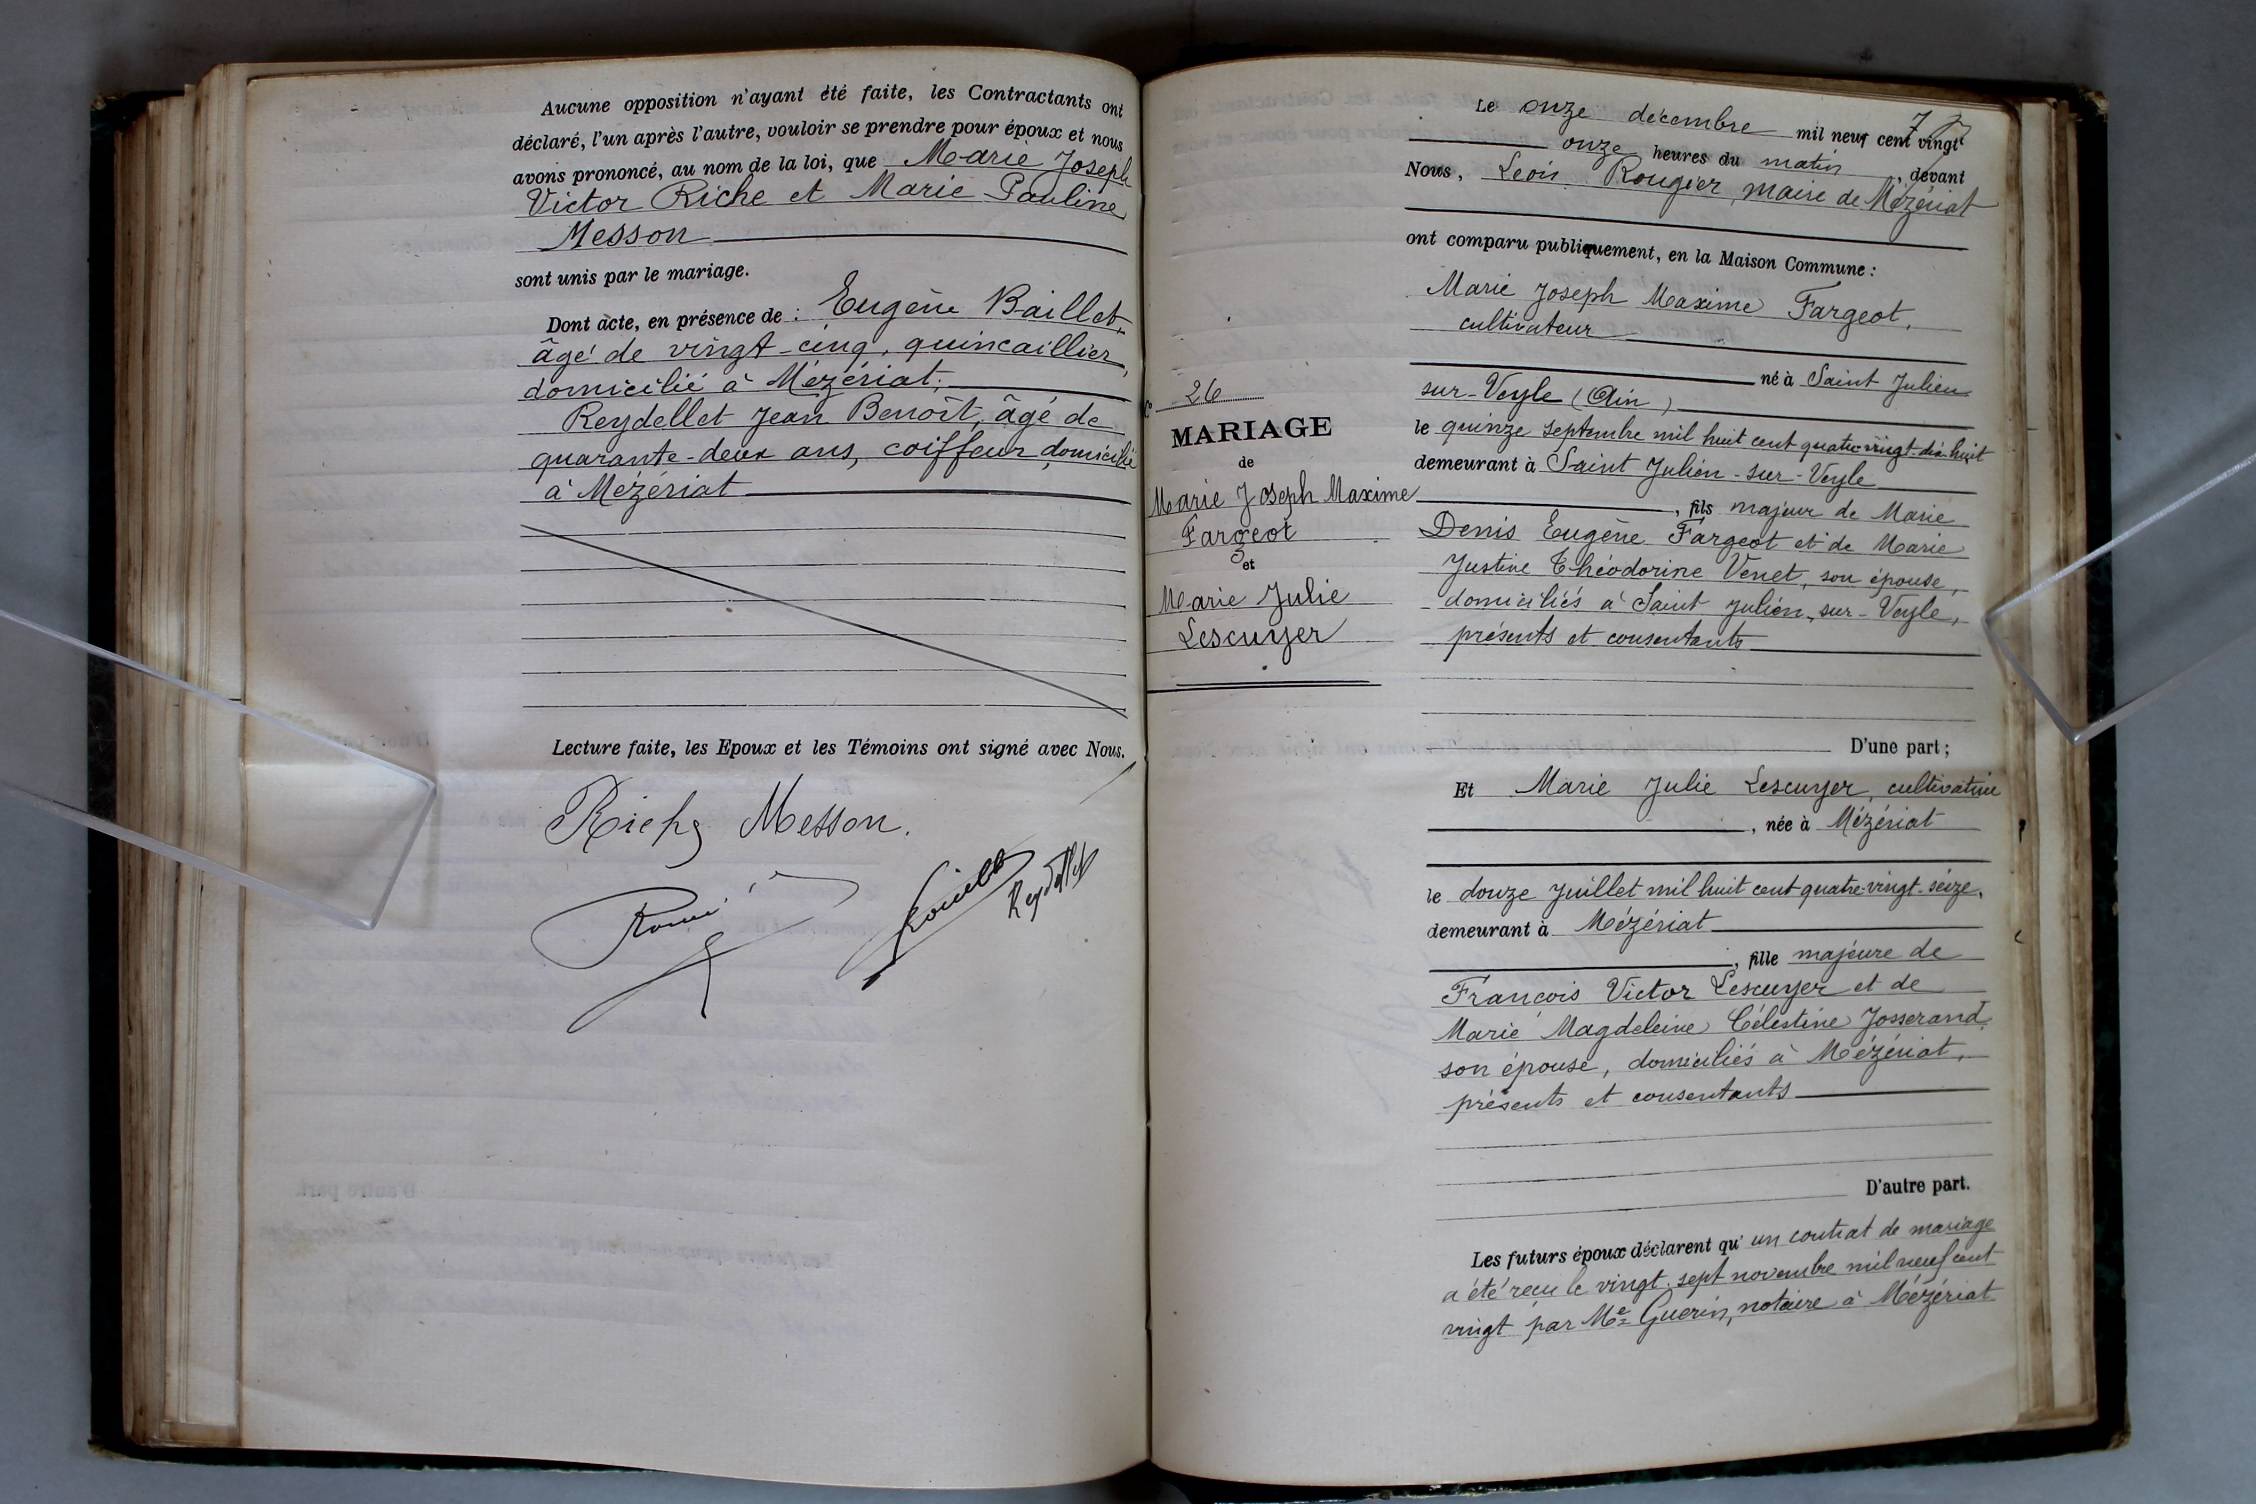 Aucune opposition n'ayant été faite, les Contractants ont
déclaré, l'un après l'autre, vouloir se prendre pour époux et nous
avons prononcé, au nom de la loi, que Marie Joseph
Victor Riche et Marie Pauline
Messon
sont unis par le mariage.
Dont acte, en présence de : Eugène Baillet,
âgé de vingt-cinq, quincaillier,
domicilié à Mézériat.
Reydellet Jean Benoît, âgé de
quarante-deux ans, coiffeur, domicilié
à Mézériat
Lecture faite, les Epoux et les Témoins ont signé avec Nous.
Riche Messon.
Reydellet
Le onze décembre mil neuf cent vingt
onze heures du matin, devant
Nous, Léon Rougier, maire de Mézériat
ont comparu publiquement, en la Maison Commune :
Marie Joseph Maxime Fargeot,
cultivateur
né à Saint Julien
sur-Veyle (Ain)
le quinze septembre mil huit cent quatre-vingt-dix-huit
demeurant à Saint Julien-sur-Veyle
, fils majeur de Marie
Denis Eugène Fargeot et de Marie
Justine Théodorine Venet, son épouse,
domiciliés à Saint Julien-sur-Veyle,
présents et consentants
26
MARIAGE
de
Marie Joseph Maxime
Fargeot
et
Marie Julie
Lescuyer
D'une part ;
Et Marie Julie Lescuyer, cultivatrice
, née à Mézériat
le douze Juillet mil huit cent quatre-vingt-seize,
demeurant à Mézériat
, fille majeure de
François Victor Lescuyer et de
Marie Magdeleine Célestine Josserand,
son épouse, domiciliés à Mézériat,
présents et consentants
D'autre part.
Les futurs époux déclarent qu'un contrat de mariage
a été reçu le vingt-sept novembre mil neuf cent
vingt par Me Guérin, notaire à Mézériat